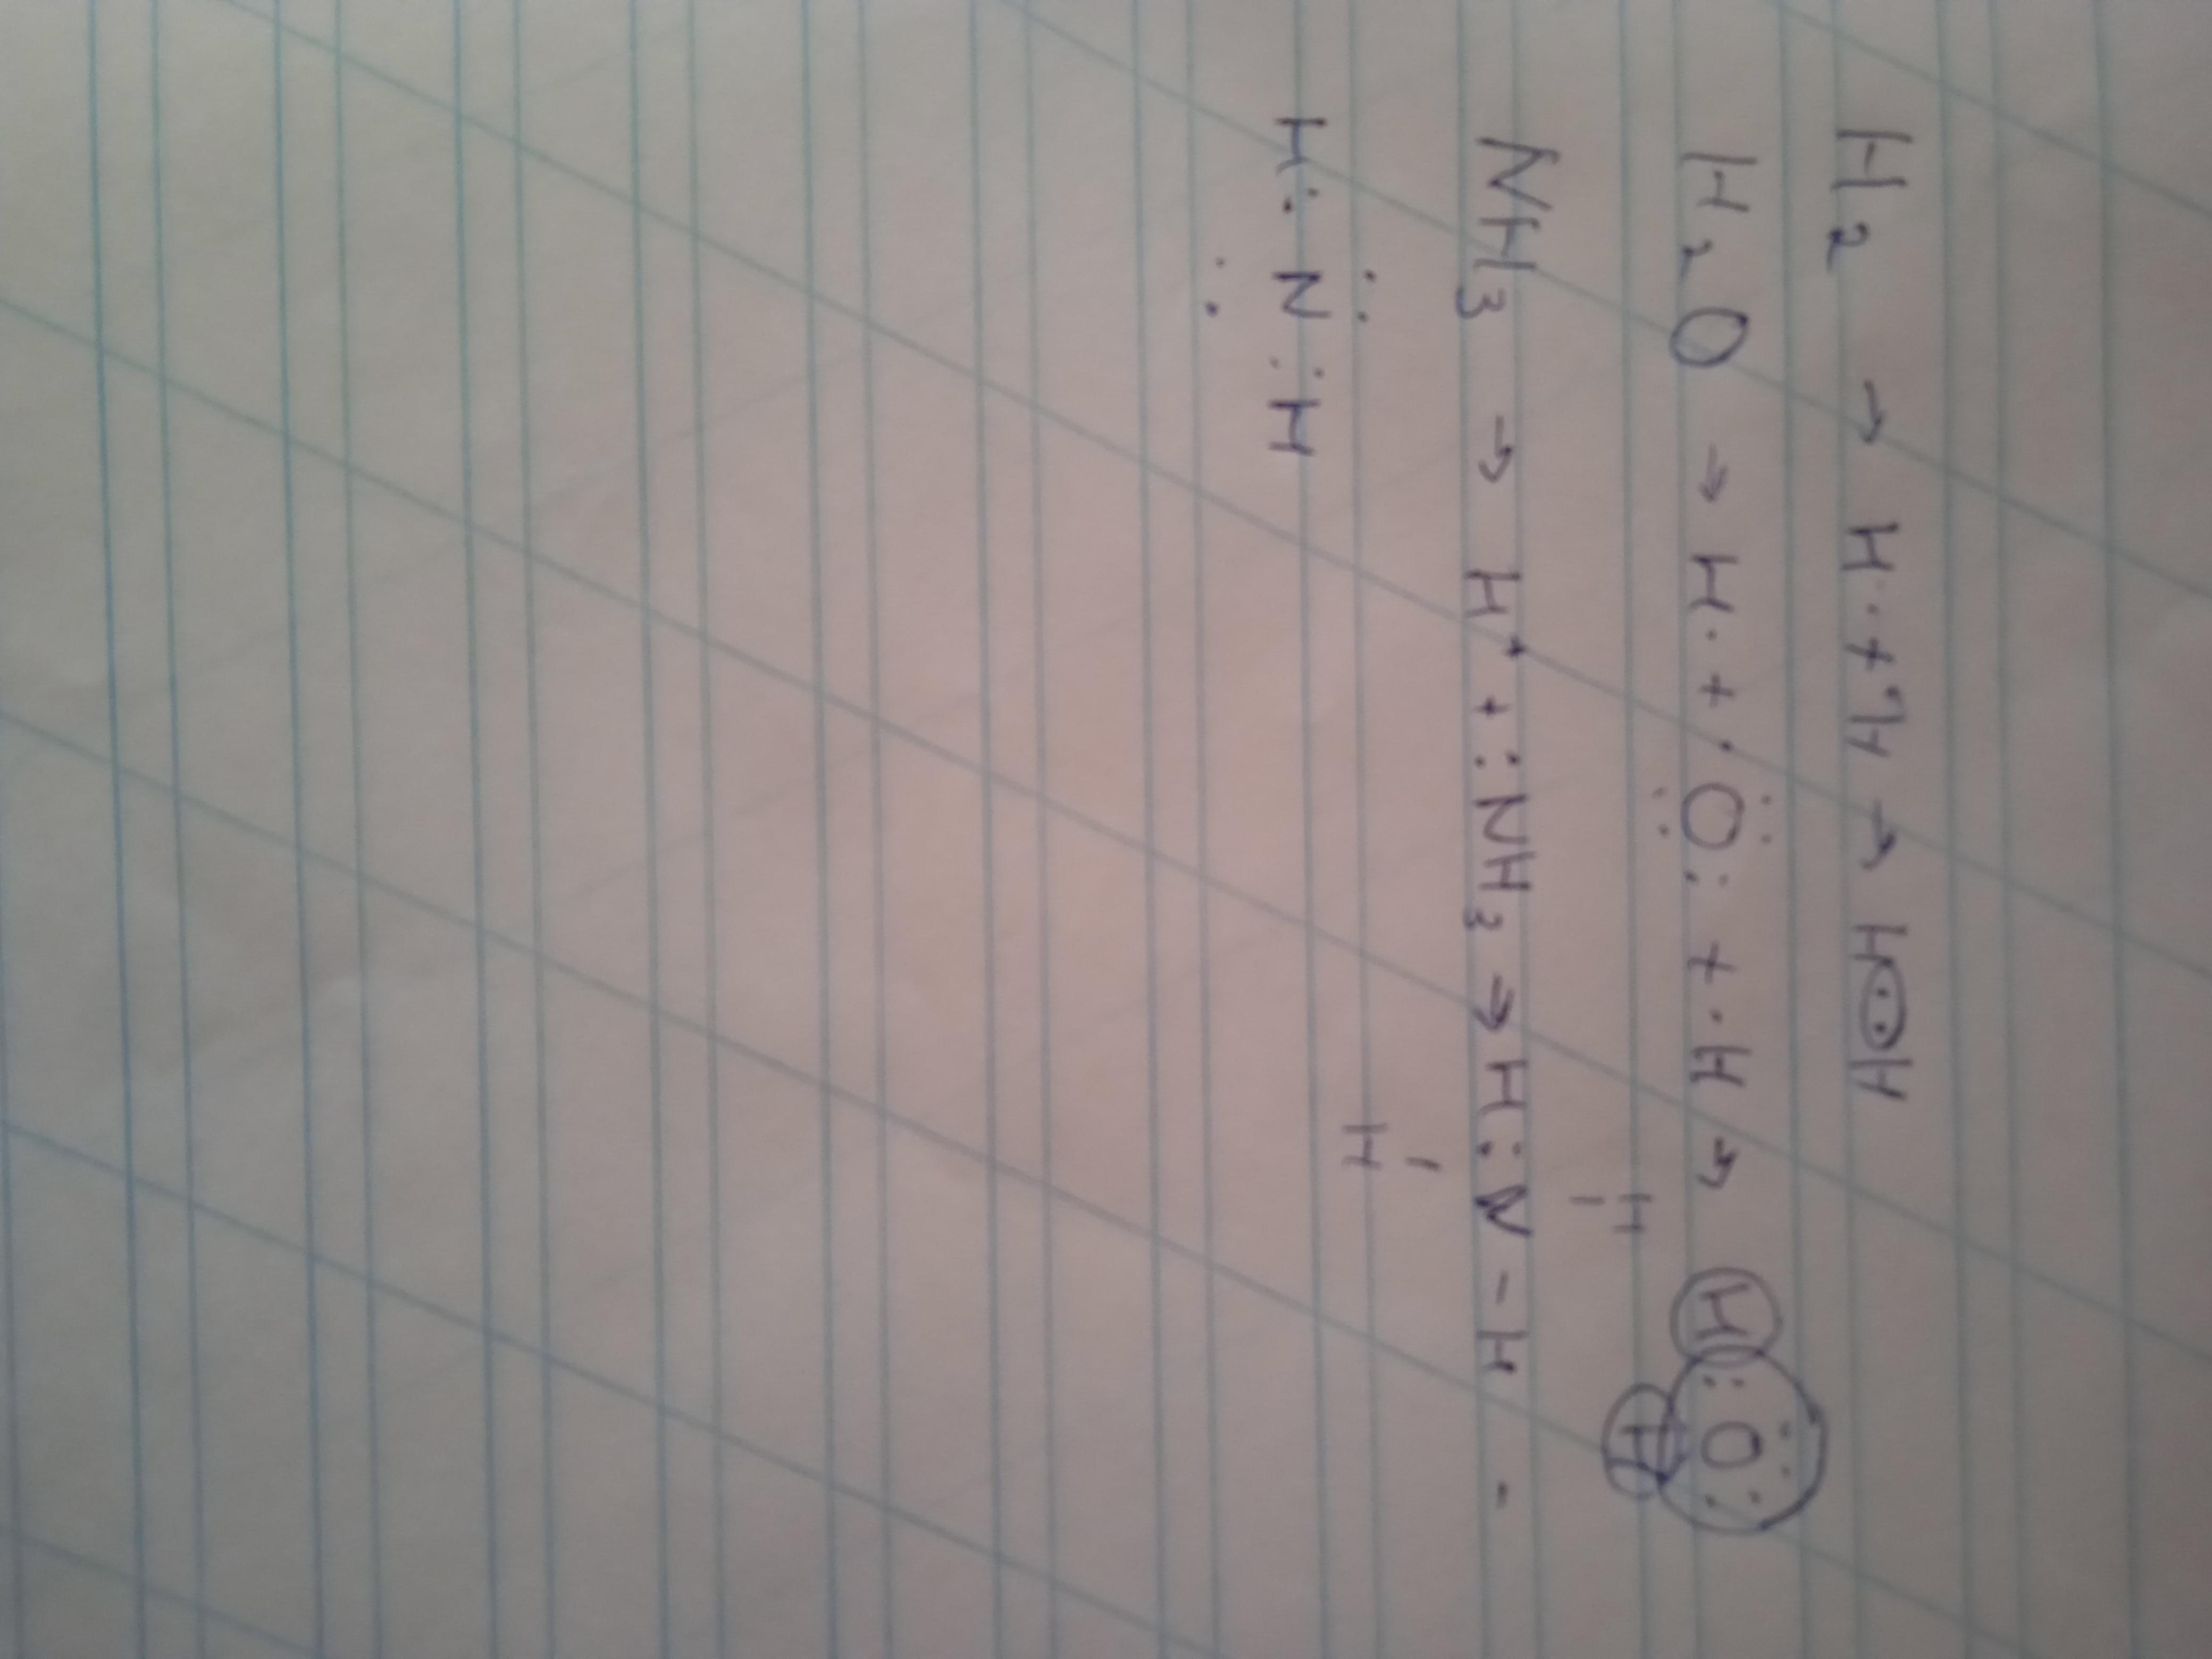 H₂ → H· + ·H → H : H
H₂O → H· + ·Ö: + ·H → H : Ö :
H
H
NH₃ → H⁺ + :NH₃ → H : N - H -
H
H : N̈ : H